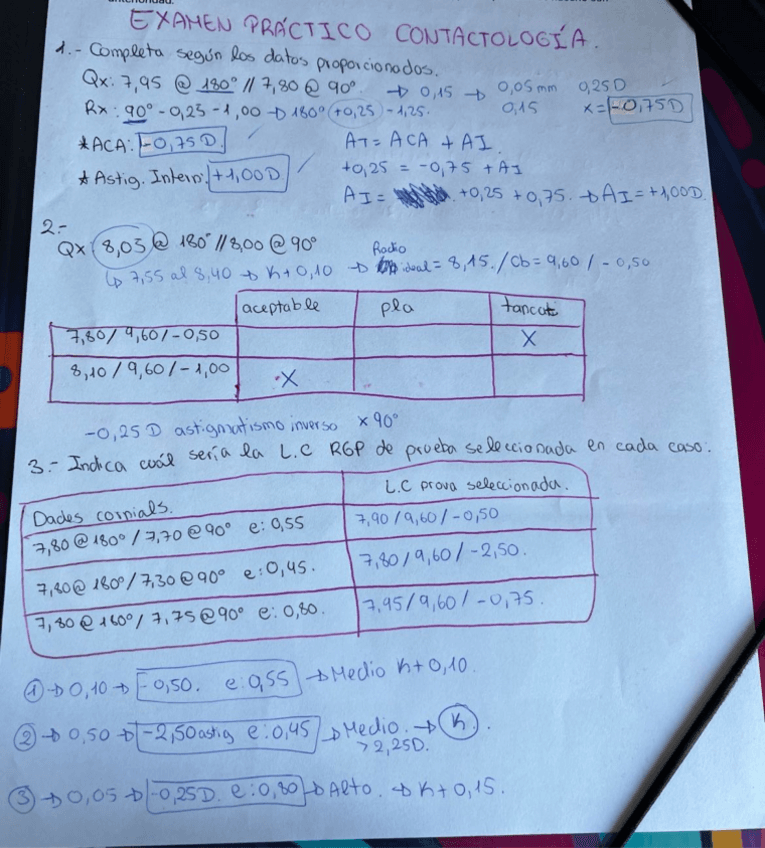 EXAMEN PRÁCTICO CONTACTOLOGÍA.
1.- Completa según los datos proporcionados.
Qx: 7,95 @ 180° // 7,80 @ 90° → 0,15 → 0,05mm 0,25D
Rx: 90° -0,25 -1,00 → 180° +0,25 -1,25. 0,15 x = -0,75D
*ACA: -0,75D. AT = ACA + AI.
* Astig. Intern: +1,00D +0,25 = -0,75 + AI
AI = +0,25 + 0,75. → AI = +1,00D.
2.-
Qx 8,05 @ 180° // 8,00 @ 90° Radio
↳ 7,55 al 8,40 → K+0,10 → ideal = 8,15. / Cb = 9,60 / -0,50
aceptable pla tancat
7,80 / 9,60 / -0,50 X
8,10 / 9,60 / -1,00 X
-0,25 D astigmatismo inverso x 90°
3.- Indica cuál sería la L.C RGP de prueba seleccionada en cada caso:
Dades cornials. L.C prova seleccionada.
7,80 @ 180° / 7,70 @ 90° e: 0,55 7,90 / 9,60 / -0,50
7,80 @ 180° / 7,30 @ 90° e: 0,45. 7,80 / 9,60 / -2,50.
7,80 @ 180° / 7,75 @ 90° e: 0,80. 7,95 / 9,60 / -0,75.
① → 0,10 → -0,50. e: 0,55 → Medio K+0,10.
② → 0,50 → -2,50 astig e: 0,45 → Medio. → K.
> 2,25D.
③ → 0,05 → -0,25D. e: 0,80 → Alto. → K+0,15.